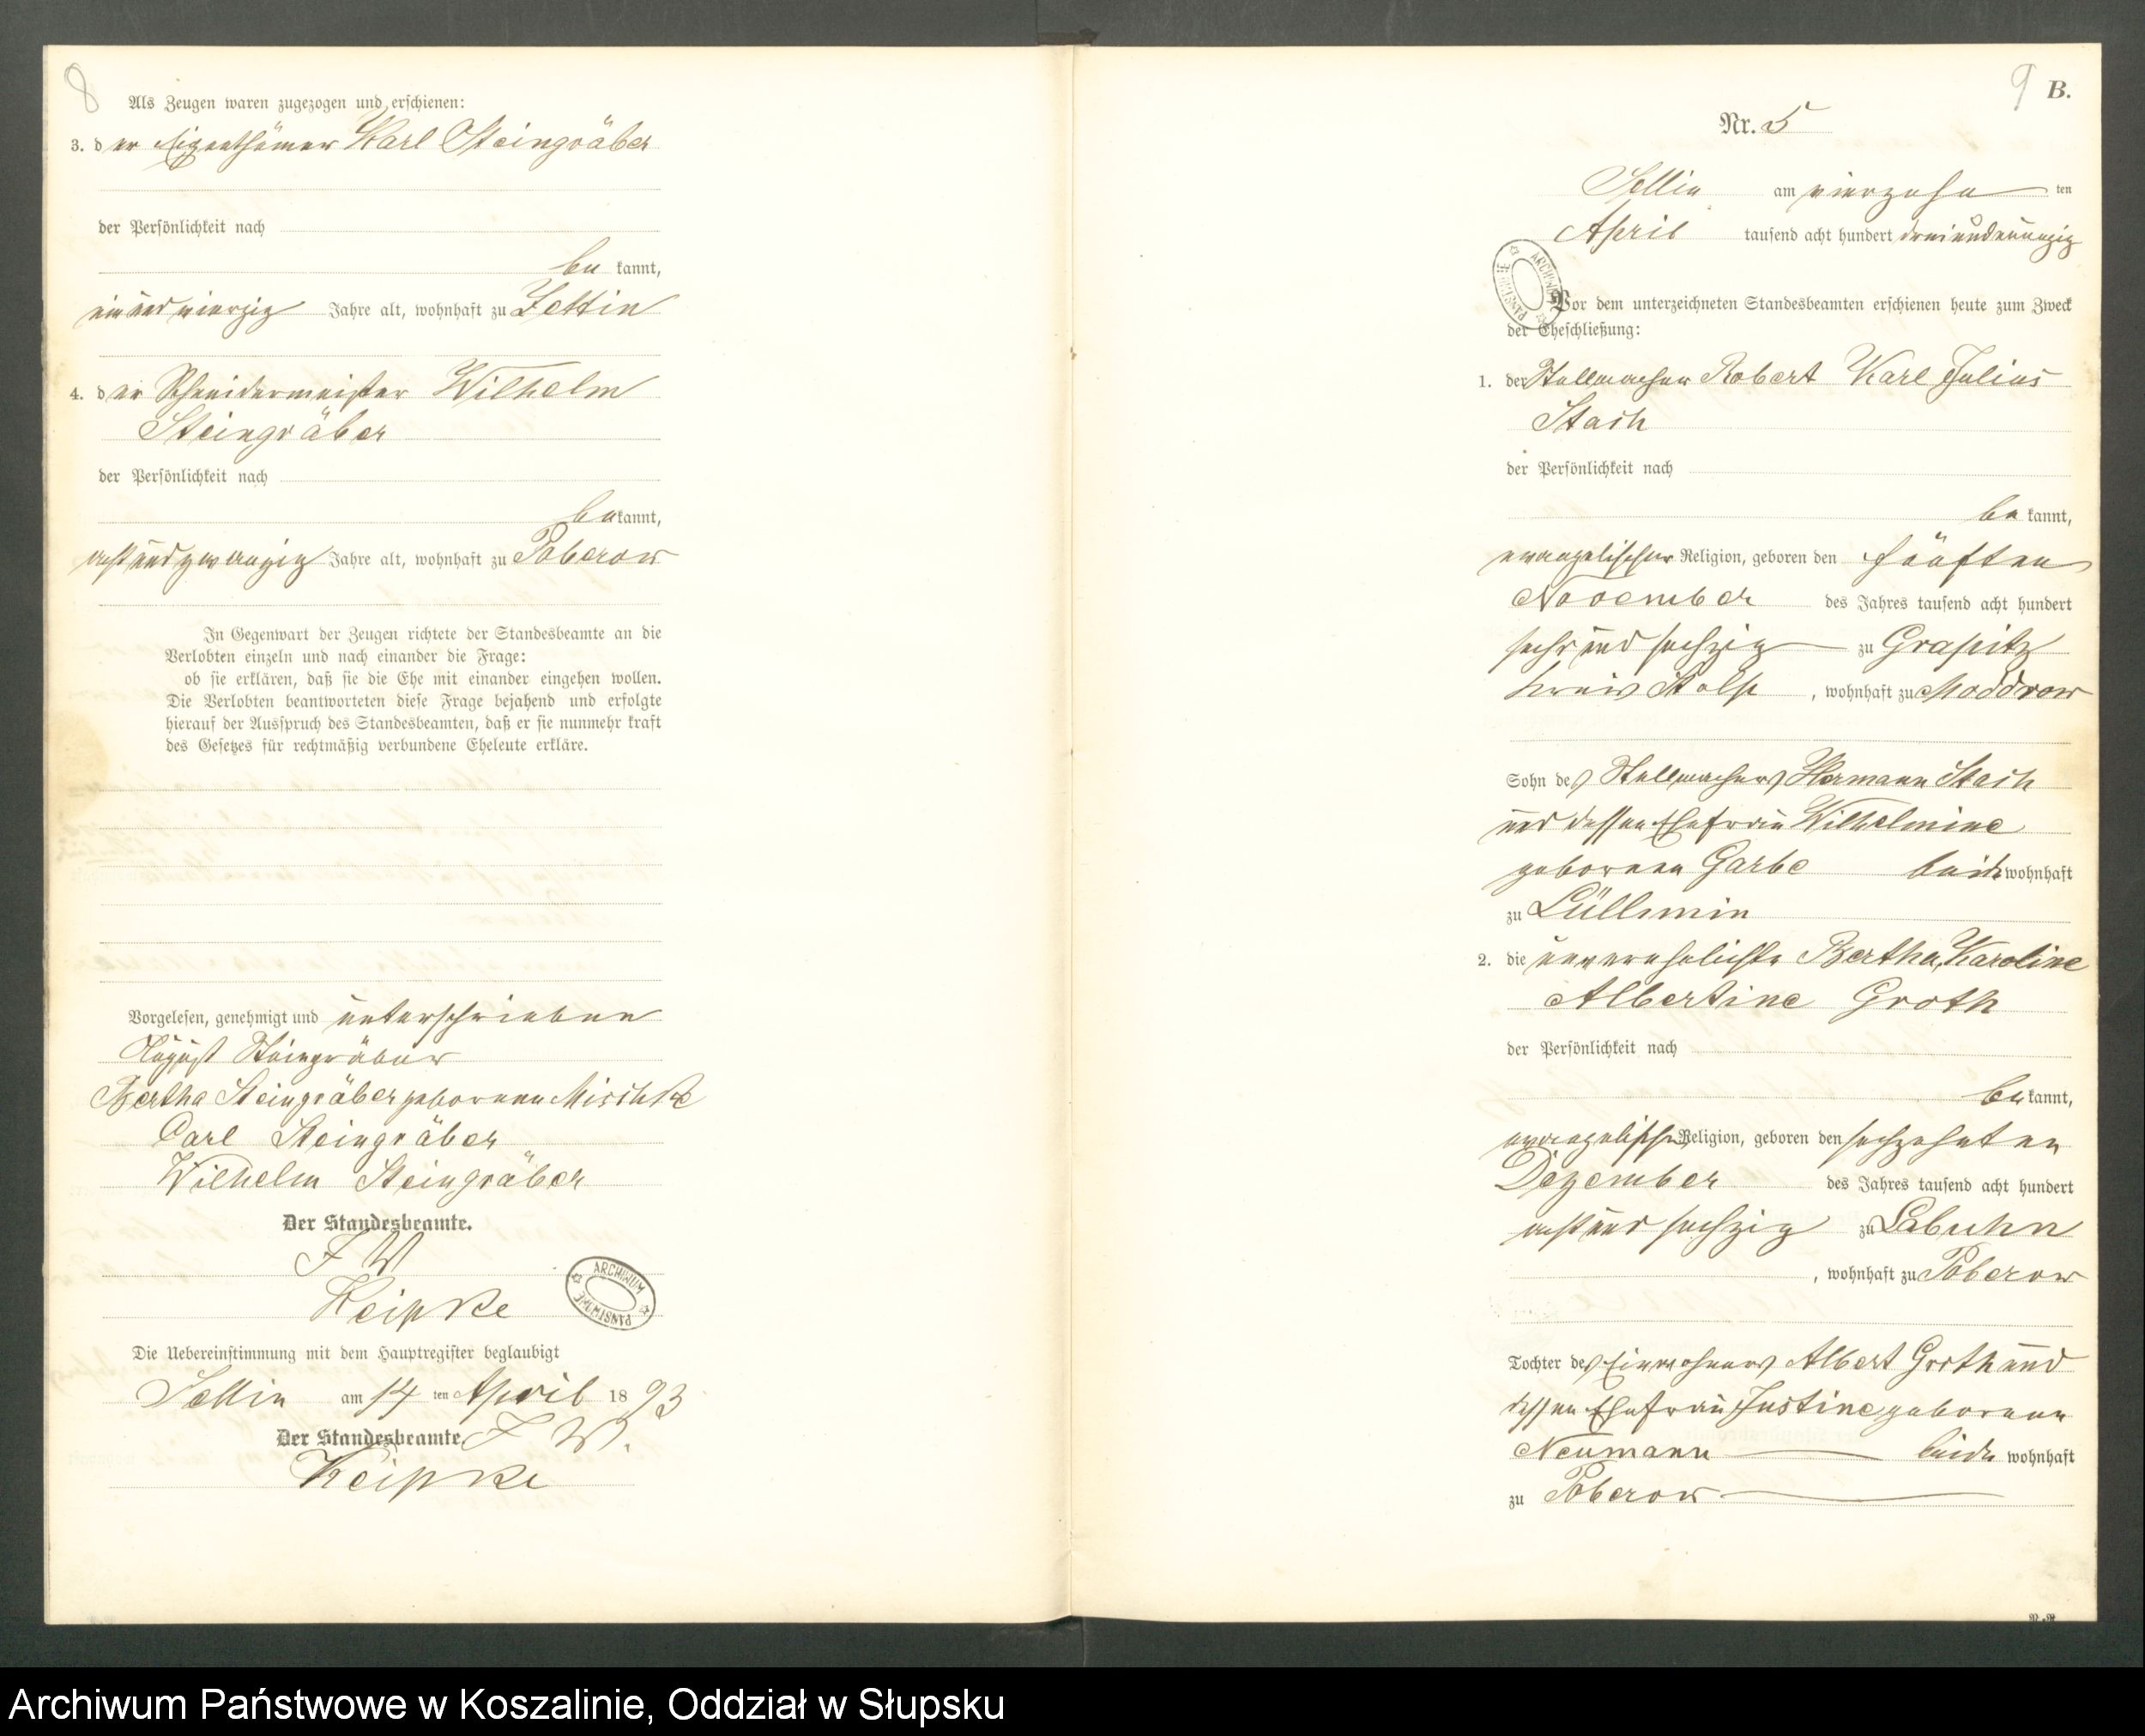 8
Als Zeugen waren zugezogen und erschienen:
3. der Eigenthümer Karl Steingräber
der Persönlichkeit nach
bekannt,
einundvierzig Jahre alt, wohnhaft zu Zettin
4. der Schneidermeister Wilhelm
Steingräber
der Persönlichkeit nach
bekannt,
achtundzwanzig Jahre alt, wohnhaft zu Poberow
In Gegenwart der Zeugen richtete der Standesbeamte an die
Verlobten einzeln und nach einander die Frage:
ob sie erklären, daß sie die Ehe mit einander eingehen wollen.
Die Verlobten beantworteten diese Frage bejahend und erfolgte
hierauf der Ausspruch des Standesbeamten, daß er sie nunmehr kraft
des Gesetzes für rechtmäßig verbundene Eheleute erkläre.
Vorgelesen, genehmigt und unterschrieben
August Steingräber
Bertha Steingräber geborenen Mischke
Carl Steingräber
Wilhelm Steingräber
Der Standesbeamte.
F W
Keipke
ARCHIWUM PAŃSTWOWE
Die Uebereinstimmung mit dem Hauptregister beglaubigt
Sellin am 14 ten April 1893
Der Standesbeamte. F W.
Keipke
9 B.
Nr. 5
Sellin am vierzehn ten
April tausend acht hundert dreiundneunzig
ARCHIWUM PAŃSTWOWE
Vor dem unterzeichneten Standesbeamten erschienen heute zum Zweck
der Eheschließung:
1. der Stellmacher Robert Karl Julius
Stach
der Persönlichkeit nach
bekannt,
evangelischer Religion, geboren den fünften
November des Jahres tausend acht hundert
sechsundsechzig zu Grapitz
Kreis Stolp, wohnhaft zu Moddrow
Sohn des Stellmachers Hermann Stach
und dessen Ehefrau Wilhelmine
geborenen Garbe beide wohnhaft
zu Lüllemin
2. die unverehelichte Bertha, Karoline
Albertine Groth
der Persönlichkeit nach
bekannt,
evangelischer Religion, geboren den sechzehnten
Dezember des Jahres tausend acht hundert
achtundsechzig zu Labuhn
, wohnhaft zu Poberow
Tochter des Einwohners Albert Groth und
dessen Ehefrau Justine geborenen
Neumann beide wohnhaft
zu Poberow
Archiwum Państwowe w Koszalinie, Oddział w Słupsku